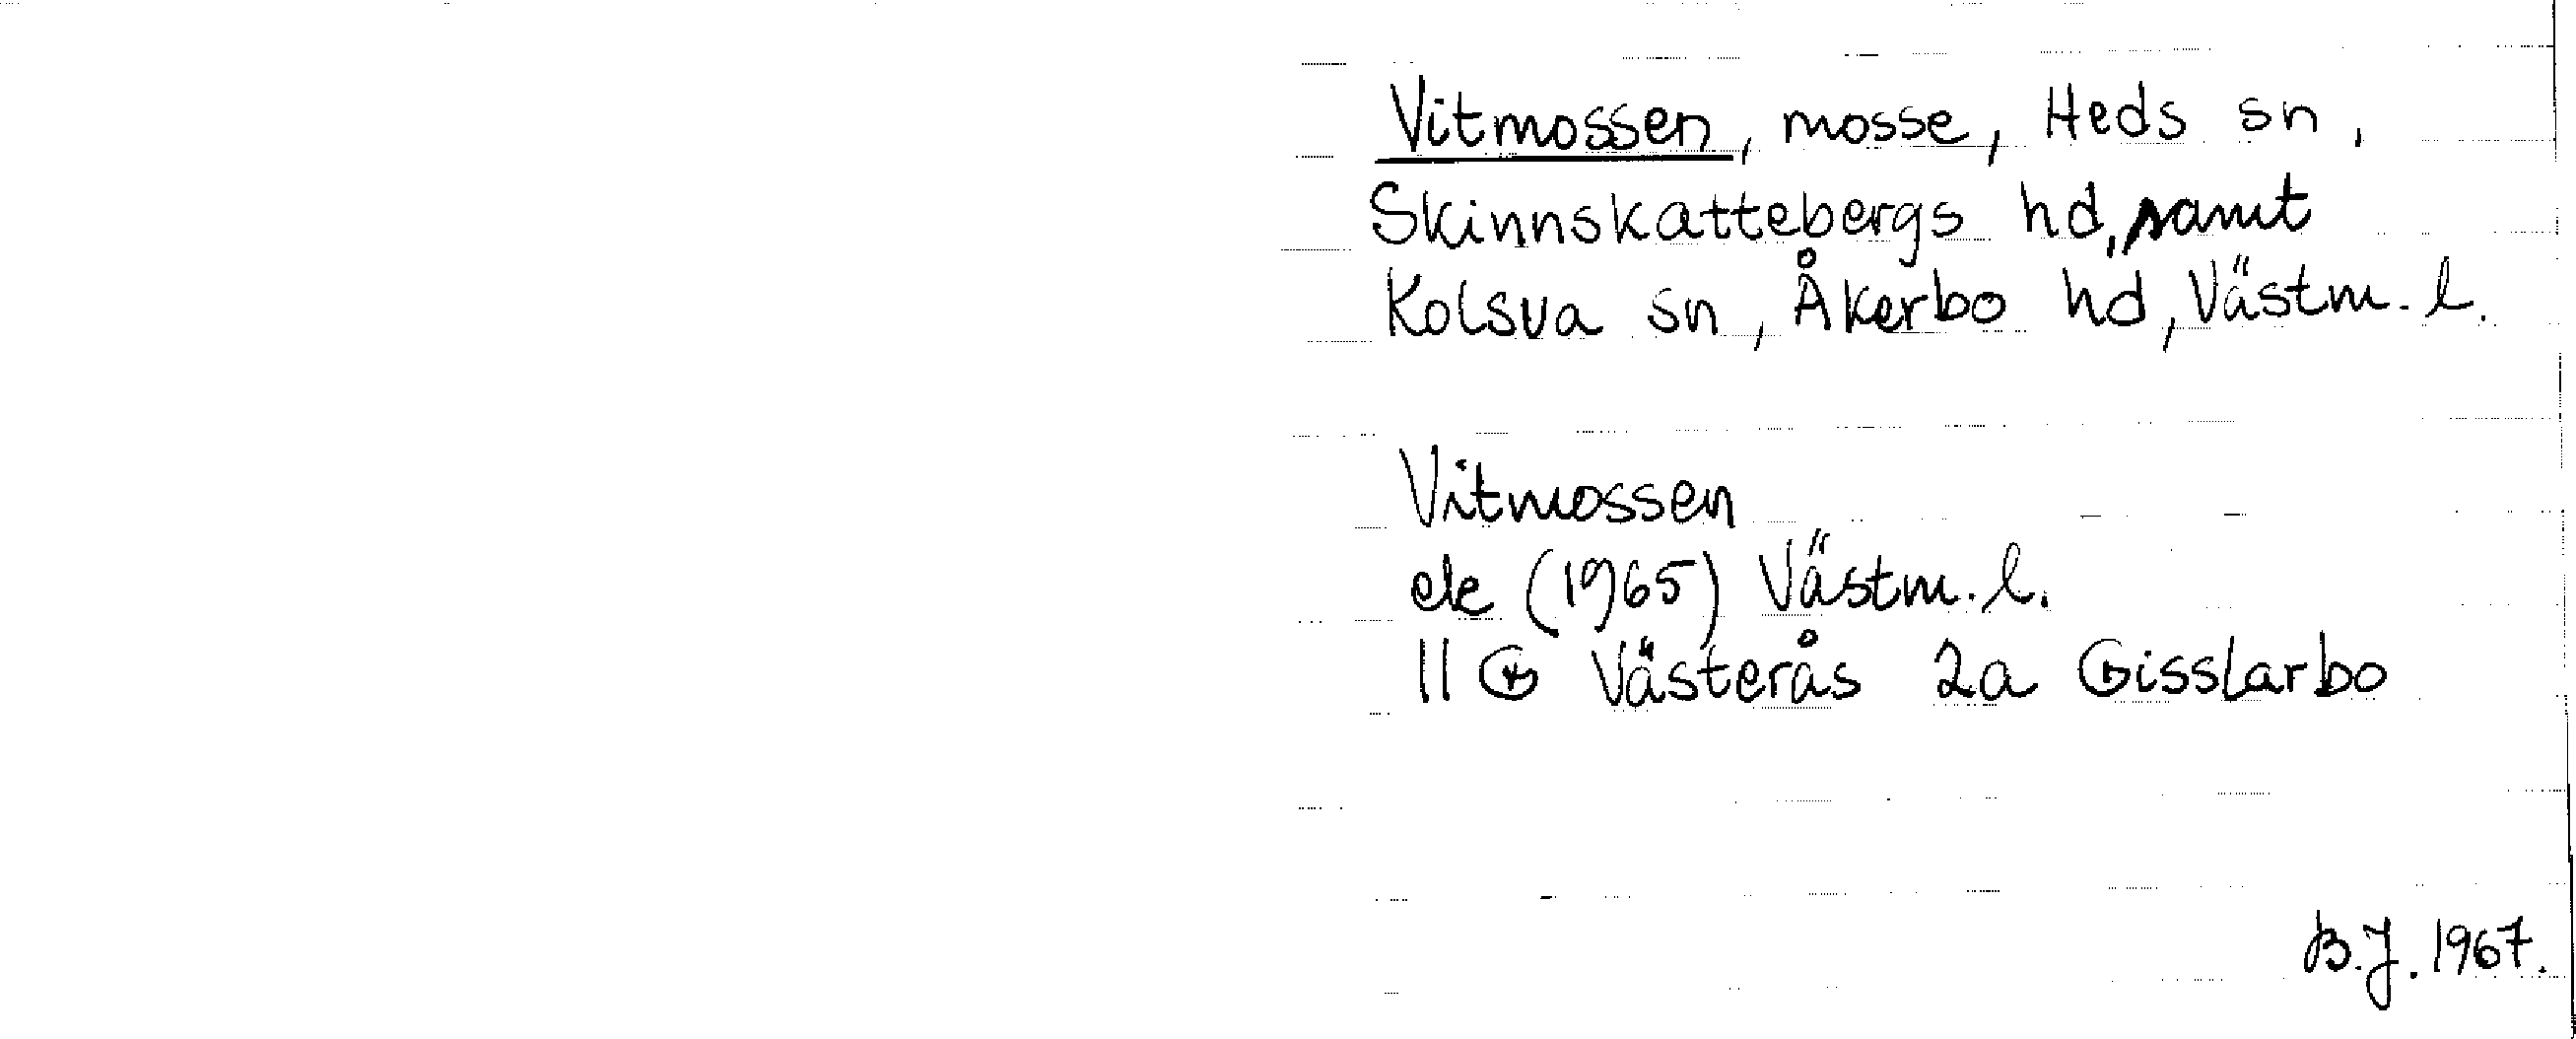 Vitmossen, mosse, Heds sn,
Skinnskattebergs hd, samt
Kolsva sn, Åkerbo hd, Västm. l.
Vitmossen
ek (1965) Västm. l.
11 G Västerås 2a Gisslarbo
B.J. 1967.